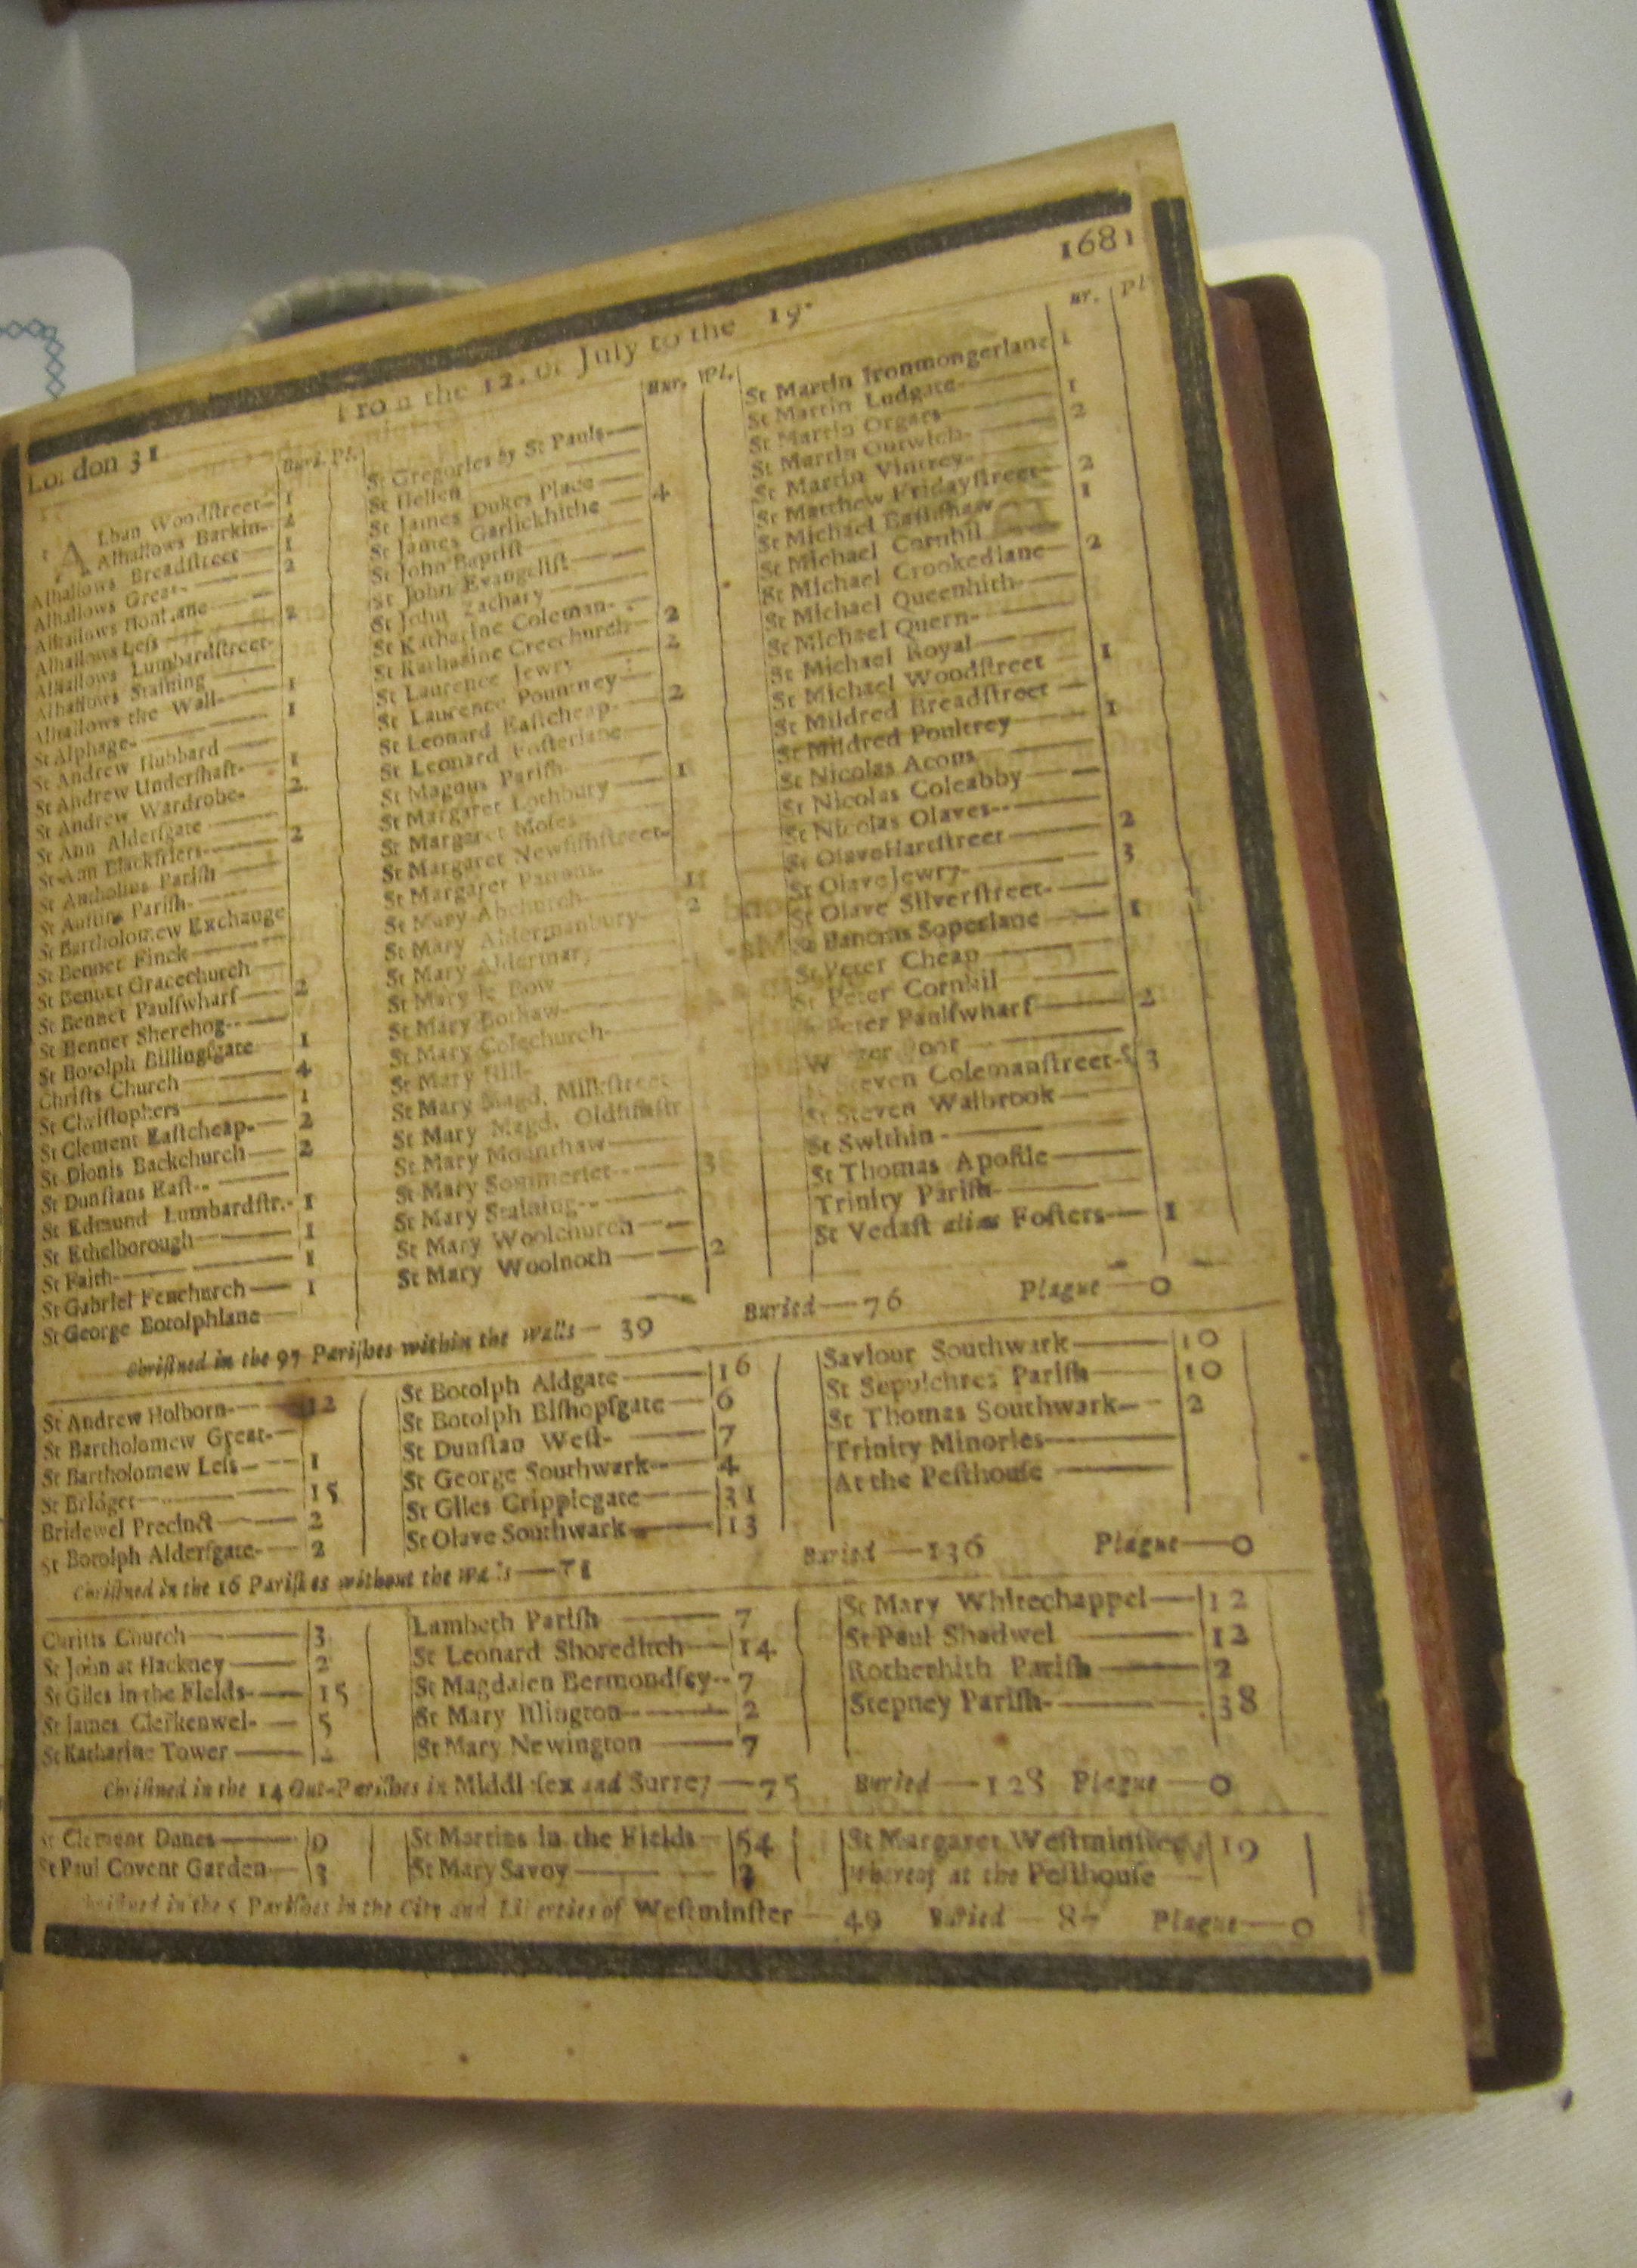 London 31 From the 12. of July to the 19. 1681
Buri. Pl.
ALban Woodstreet— 1
Alhallows Barkin- 2
Alhallows Breadstreet 1
Alhallows Great- 2
Alhallows HonLane
Alhallows Less 2
Alhallows Lumbardstreet-
Alhallows Staining
Alhallows the Wall- 1
St Alphage- 1
St Andrew Hubbard
St Andrew Undershaft- 1
St Andrew Wardrobe- 2
St Ann Aldersgate
St Ann Blackfriers 2
St Antholins Parish
St Austins Parish-
St Bartholomew Exchange
St Bennet Finck
St Bennet Gracechurch
St Bennet Paulswharf 2
St Bennet Sherehog
St Botolph Billingsgate 1
Christs Church 4
St Christophers 1
St Clement Eastcheap- 2
St Dionis Backchurch 2
St Dunstans East
St Edmund Lumbardstr.- 1
St Ethelborough 1
St Faith 1
St Gabriel Fenchurch 1
St George Botolphlane
Bur. Pl.
St Gregories by St Pauls
St Hellen
St James Dukes Place
St James Garlickhithe 4
St John Baptist
St John Evangelist
St John Zachary
St Katharine Coleman-
St Katharine Creechurch 2
St Laurence Jewry 2
St Laurence Pountney
St Leonard Eastcheap- 2
St Leonard Fosterlane
St Magnus Parish
St Margaret Lothbury 1
St Margaret Moses
St Margaret Newfishstreet-
St Margaret Pattons-
St Mary Abchurch
St Mary Aldermanbury- 2
St Mary Aldermary
St Mary le Bow
St Mary Bothaw-
St Mary Colechurch-
St Mary Hill-
St Mary Magd. Milkstreet
St Mary Magd. Oldfishstr
St Mary Mounthaw
St Mary Sommerset 3
St Mary Staining
St Mary Woolchurch
St Mary Woolnoth 2
Bur. Pl
St Martin Ironmongerlane 1
St Martin Ludgate
St Martin Orgars 1
St Martin Outwich- 2
St Martin Vintrey
St Matthew Fridaystreet 2
St Michael Bassishaw 1
St Michael Cornhil
St Michael Crookedlane 2
St Michael Queenhith
St Michael Quern-
St Michael Royal
St Michael Woodstreet 1
St Mildred Breadstreet
St Mildred Poultrey 1
St Nicolas Acons
St Nicolas Coleabby
St Nicolas Olaves
St Olave Hartstreet 2
St Olave Jewry- 3
St Olave Silverstreet-
St Pancras Soperlane 1
St Peter Cheap
St Peter Cornhil
St Peter Paulswharf 2
St Steven Colemanstreet 3
St Steven Walbrook
St Swithin
St Thomas Apostle
Trinity Parish
St Vedast alias Fosters 1
Christned in the 97 Parishes within the Walls— 39 Buried—76 Plague—0
St Andrew Holborn- 12
St Bartholomew Great-
St Bartholomew Less 1
St Bridget 15
Bridewel Precinct 2
St Botolph Aldersgate- 2
St Botolph Aldgate 16
St Botolph Bishopsgate 6
St Dunstan West- 7
St George Southwark 4
St Giles Cripplegate 31
St Olave Southwark 13
Saviour Southwark 10
St Sepulchres Parish 10
St Thomas Southwark 2
Trinity Minories
At the Pesthouse
Christned in the 16 Parishes without the Walls—71 Buried—136 Plague—0
Christs Church 3
St John at Hackney 2
St Giles in the Fields 15
St James Clerkenwel- 5
St Katharine Tower 2
Lambeth Parish 7
St Leonard Shoreditch 14
St Magdalen Bermondsey 7
St Mary Islington 2
St Mary Newington 7
St Mary Whitechappel 12
St Paul Shadwel 12
Rotherhith Parish 2
Stepney Parish- 38
Christned in the 14 Out-Parishes in Middlesex and Surrey—75 Buried—128 Plague—0
St Clement Danes 9
St Paul Covent Garden 3
St Martins in the Fields 54
St Mary Savoy 2
St Margaret Westminster 19
whereof at the Pesthouse
Christned in the 5 Parishes in the City and Liberties of Westminster—49 Buried—87 Plague—0